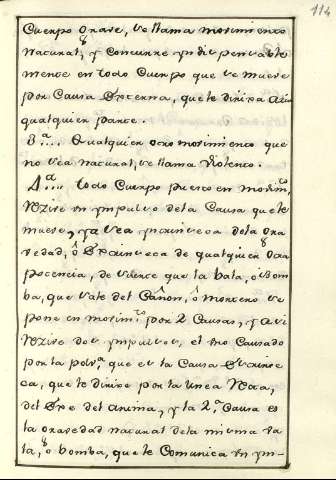 114
Cuerpo Grave, se llama movimiento
Natural, y concurre yndispensable
mente en todo Cuerpo que se mueve
por Causa Externa, que le dirixa a
qualquier parte.
3.ª .... Qualquier otro movimiento que
no sea natural, se llama violento.
4.ª .... todo Cuerpo puesto en movim.to
Rezive un ympulso de la Causa que le
mueve, ya sea yntrinseca de la Gra
vedad, ô Extrinseca de qualquier otra
potencia, de suerte que la bala, o Bom
ba, que sale del Cañon, ô Mortero se
pone en movim.to por 2 Causas, y a si
Rezive dos ympulsos, el uno Causado
por la polv.ª que es la Causa Extrinse
ca, que le dirixe por la linea Recta,
del Exe del anima, y la 2.ª Causa es
la Gravedad natural de la misma ba
la, o bomba, que le Comunica un ym-